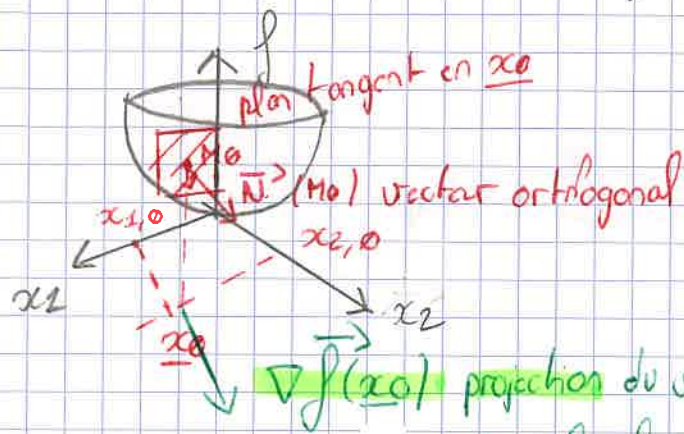 f
plan tangent en x0
M0
N (M0) vector orthogonal
x1,0
x2,0
x1
x2
x0
∇f(x0) projection du